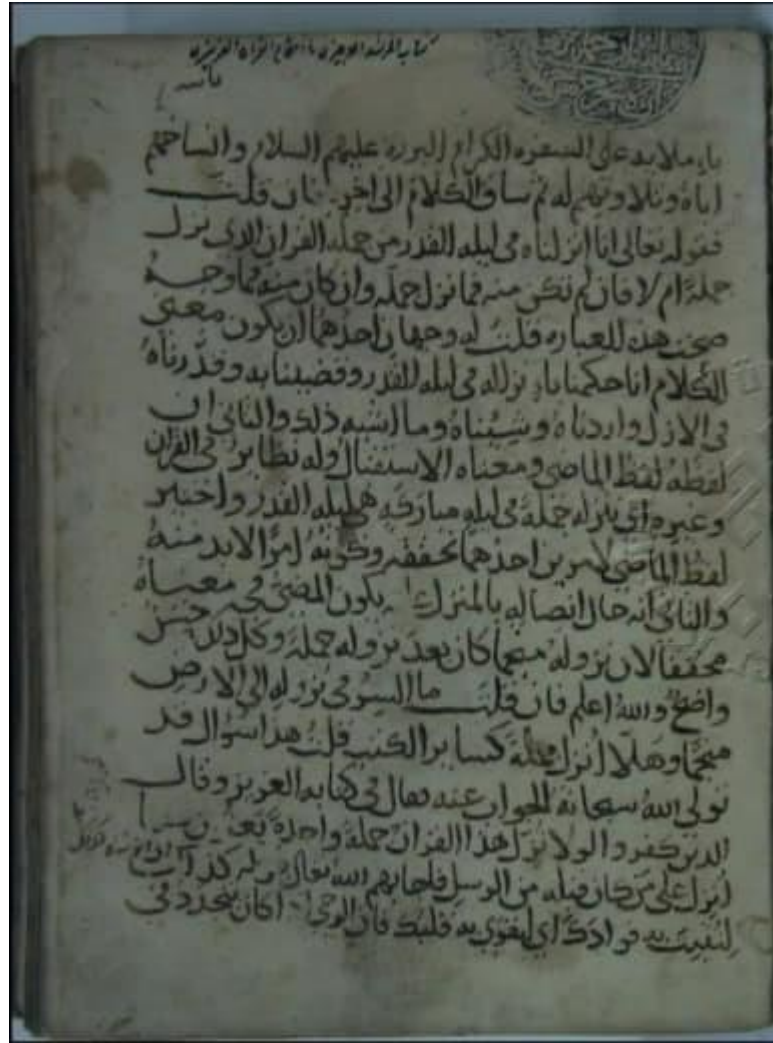 كتاب المرشد الوجيز في علوم القرآن العزيز
باملائه على السفره الكرام البرره عليهم السلام وانساخهم
اياه وتلاوتهم له ثم ساق الكلام الى اخره فان قلت
فقوله تعالى انا انزلناه في ليله القدر من جمله القران الذى نزل
جملة ام لا فان لم تكن منه فما نزل جمله وان كان منه فما وجه
صحت هذه العباره قلت له وجهان احدهما ان يكون معنى
الكلام انا حكمنا بانزاله في ليله القدر وقضينا به وقدرناه
في الازل واردناه وشيناه وما اشبه ذلك والثاني ان
لفظه لفظ الماضي ومعناه الاستقبال وله نظاير في القران
وغيره اي ينزله جملة في ليله مباركه هي ليله القدر واختير
لفظ الماضي لامرين احدهما تحققه وكونه امرا لابد منه
والثاني انه حال اتصاله بالمنزل يكون المضي في معناه
محققا لان نزوله منجما كان بعد نزوله جملة وكل ذلك حسن
واضح والله اعلم فان قلت ما السر في نزوله الى الارض
منجما وهلا انزل جملة كساير الكتب قلت هذا سوال قد
تولى الله سبحانه الجواب عنه فقال في كتابه العزيز وقال
الذين كفروا لولا نزل هذا القران جملة واحدة يعنون
انزل على من كان قبله من الرسل فاجابهم الله تعالى بقوله كذلك
لنثبت به فوادك اي لنقوي به قلبك فان الوحي اذا كان يتجدد في